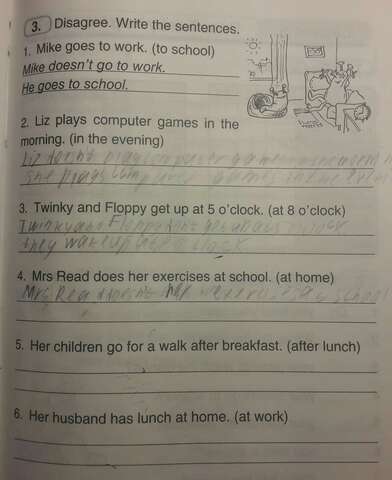 3. Disagree. Write the sentences.
1. Mike goes to work. (to school)
Mike doesn't go to work.
He goes to school.
2. Liz plays computer games in the
morning. (in the evening)
Liz plays computer games
she plays computer games
3. Twinky and Floppy get up at 5 o'clock. (at 8 o'clock)
Twinky and Floppy
they
4. Mrs Read does her exercises at school. (at home)
Mrs Read school
5. Her children go for a walk after breakfast. (after lunch)
6. Her husband has lunch at home. (at work)